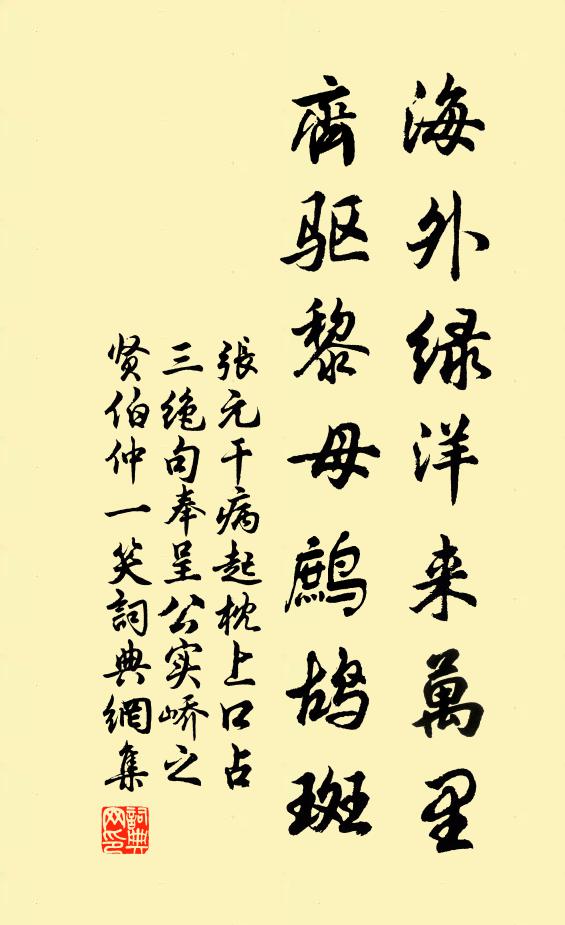 海外绿洋来萬里
齊驱黎母鹧鸪斑
張元干病起枕上口占
三绝句奉呈公实峤之
贤伯仲一笑詞典網集
詞典网印